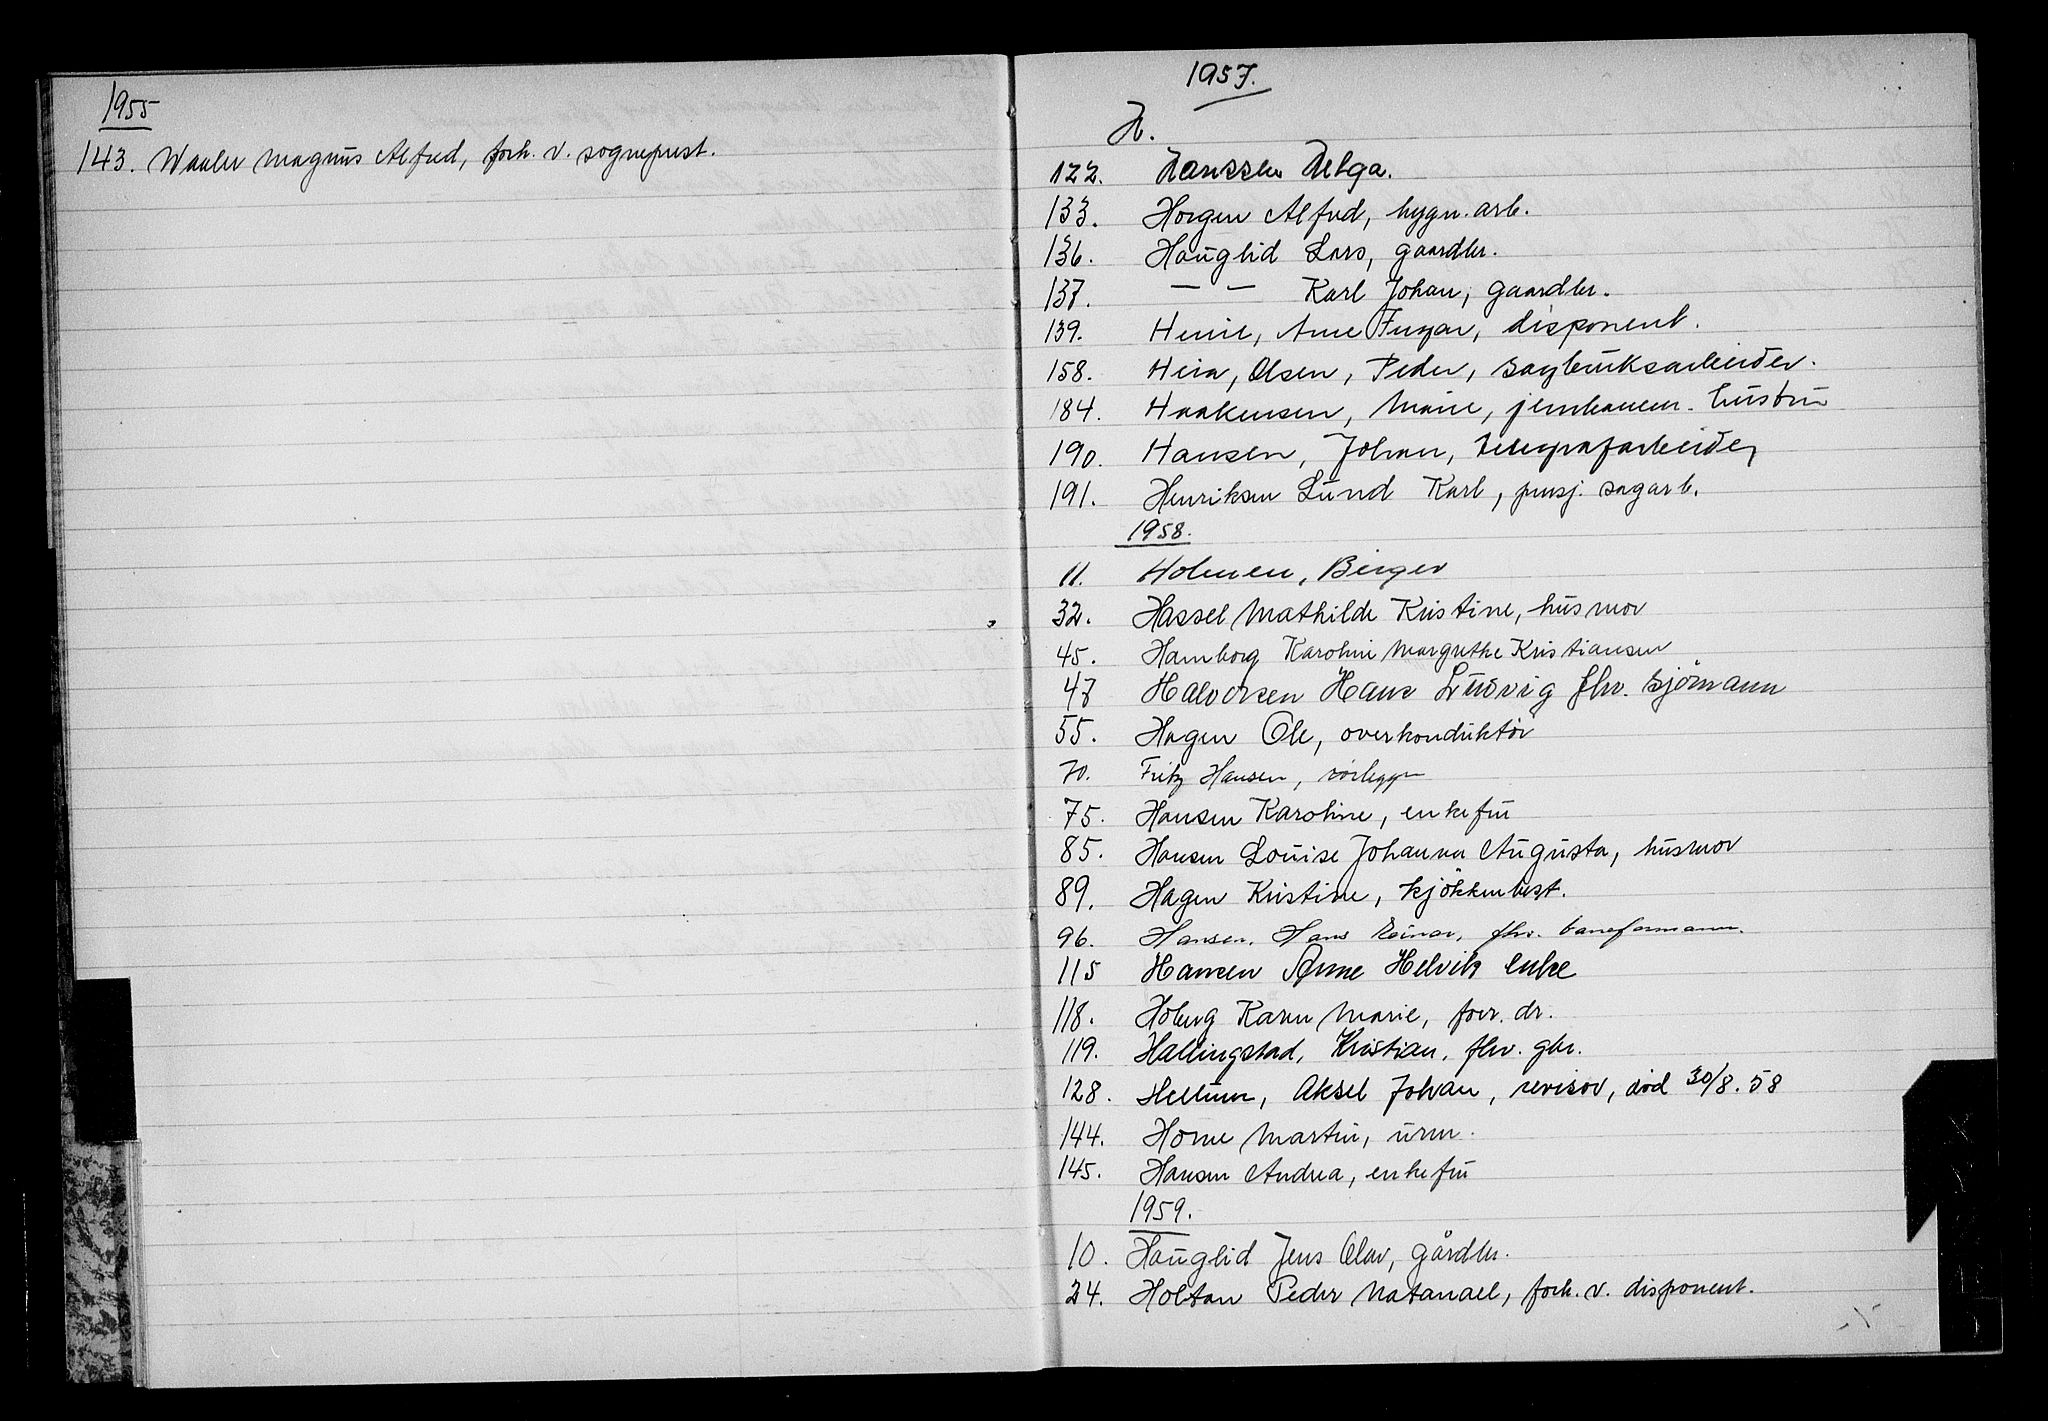 1955
143. Waaler Magnus Alfred, forh. v. sogneprest.
1957.
H.
122. Hanssen Helga.
133. Horgen Alfred, bygn. arb.
136. Hauglid Lars, gaardbr.
137. — — Karl Johan, gaardbr.
139. Henie, Arne disponent.
158. Heia, Olsen, Peder, sagbruksarbeider.
184. Haakensen, Marie, jernbanem. hustru
190. Hansen, Johan, telegrafarbeider
191. Henriksen Lund Karl, pensj. sagarb.
1958.
11. Holmen, Birger
32. Hassel Mathilde Kristine, husmor
45. Hamborg Karoline Margrethe Kristiansen
47 Halvorsen Hans Ludvig fhv. sjømann
55. Hagen Ole, overkonduktør
70. Fritz Hansen, rørlegger
75. Hansen Karoline, enkefru
85. Hansen Louise Johanna Augusta, husmor
89. Hagen Kristine, kjøkkenbest.
96. Hansen, Hans Einar, fhv. baneformann.
115 Hansen Anne Helvik enke
118. Hoberg Karen Marie, forr. dr.
119. Hallingstad, Kristian, fhv. gbr.
128. Hellum, Aksel Johan, revisor, død 30/8. 58
144. Horne Martin, urm.
145. Hansen Andrea, enkefru
1959.
10. Hauglid Jens Olav, gårdbr.
24. Holtan Peder Natanael, forh. v. disponent.